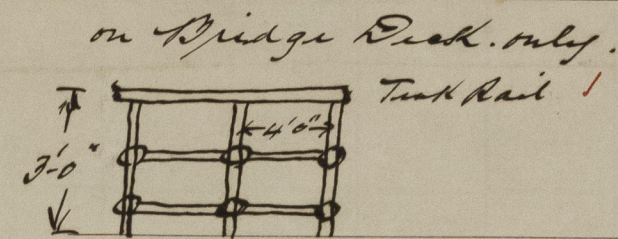 on Bridge Deck. only.
Teak Rail
4'0"
3'-0"